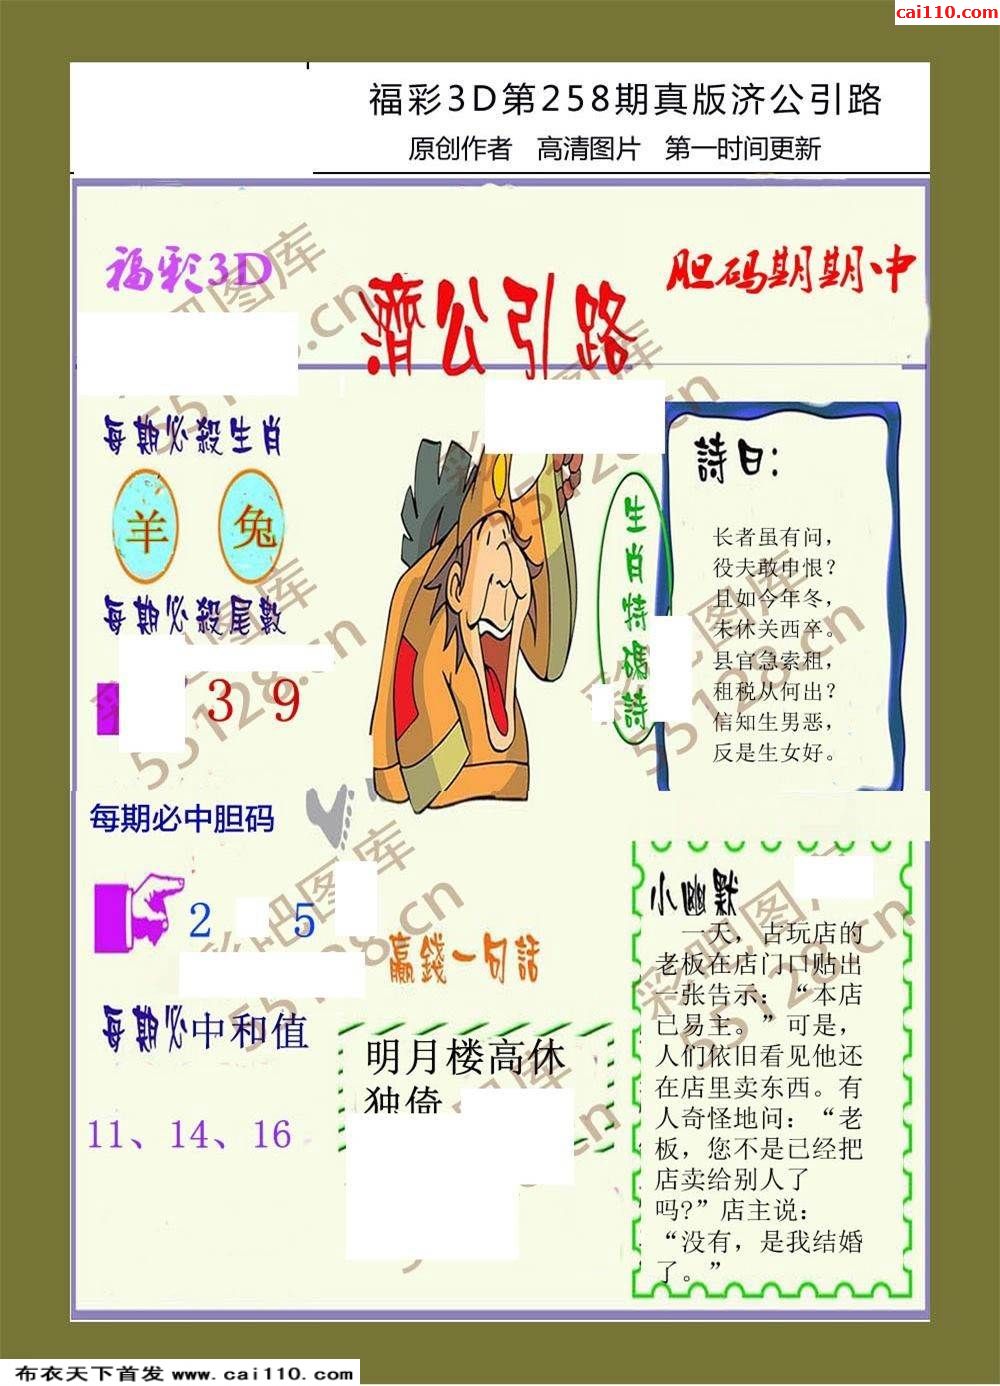 cai110.com
福彩3D第258期真版济公引路
原创作者 高清图片 第一时间更新
福彩3D
濟公引路
胆码期期中
每期必殺生肖
羊 兔
每期必殺尾數
3 9
每期必中胆码
2 5
每期必中和值
11、14、16
生肖特碼詩
詩曰：
长者虽有问，
役夫敢申恨？
且如今年冬，
未休关西卒。
县官急索租，
租税从何出？
信知生男恶，
反是生女好。
赢錢一句話
明月楼高休
独倚
小幽默
一天，古玩店的
老板在店门口贴出
一张告示：“本店
已易主。”可是，
人们依旧看见他还
在店里卖东西。有
人奇怪地问：“老
板，您不是已经把
店卖给别人了
吗?”店主说：
“没有，是我结婚
了。”
彩吧图库
55128.cn
布衣天下首发 www.cai110.com